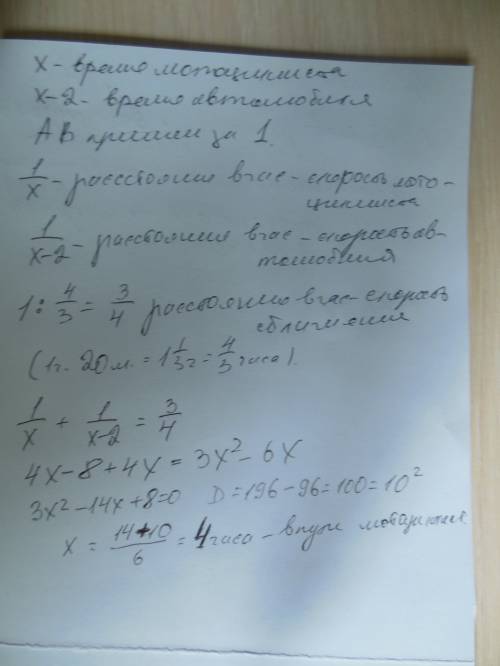 x - время мотоциклиста
x-2 - время автомобиля
AB примем за 1.
1/x - расстояние в час - скорость мото-
циклиста
1/(x-2) - расстояние в час - скорость ав-
томобиля
1 : 4/3 = 3/4 расстояние в час - скорость
сближения
(1ч. 20м. = 1 1/3 ч = 4/3 часа).
1/x + 1/(x-2) = 3/4
4x - 8 + 4x = 3x² - 6x
3x² - 14x + 8 = 0 D = 196 - 96 = 100 = 10²
x = (14+10)/6 = 4 часа - в пути мотоциклист